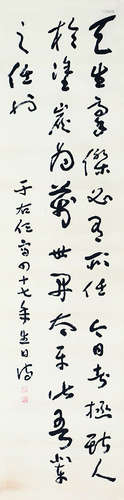 天生豪傑必有所任今日者拯斯人
於塗炭為萬世開太平此吾輩
之任也
于右任 四十七年生日